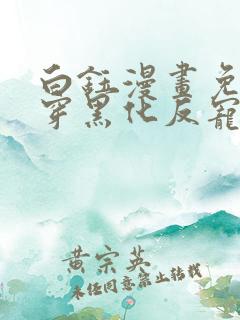 白鈺漫畫免
穿黑化反寵
黄宗英
未经同意禁止转载